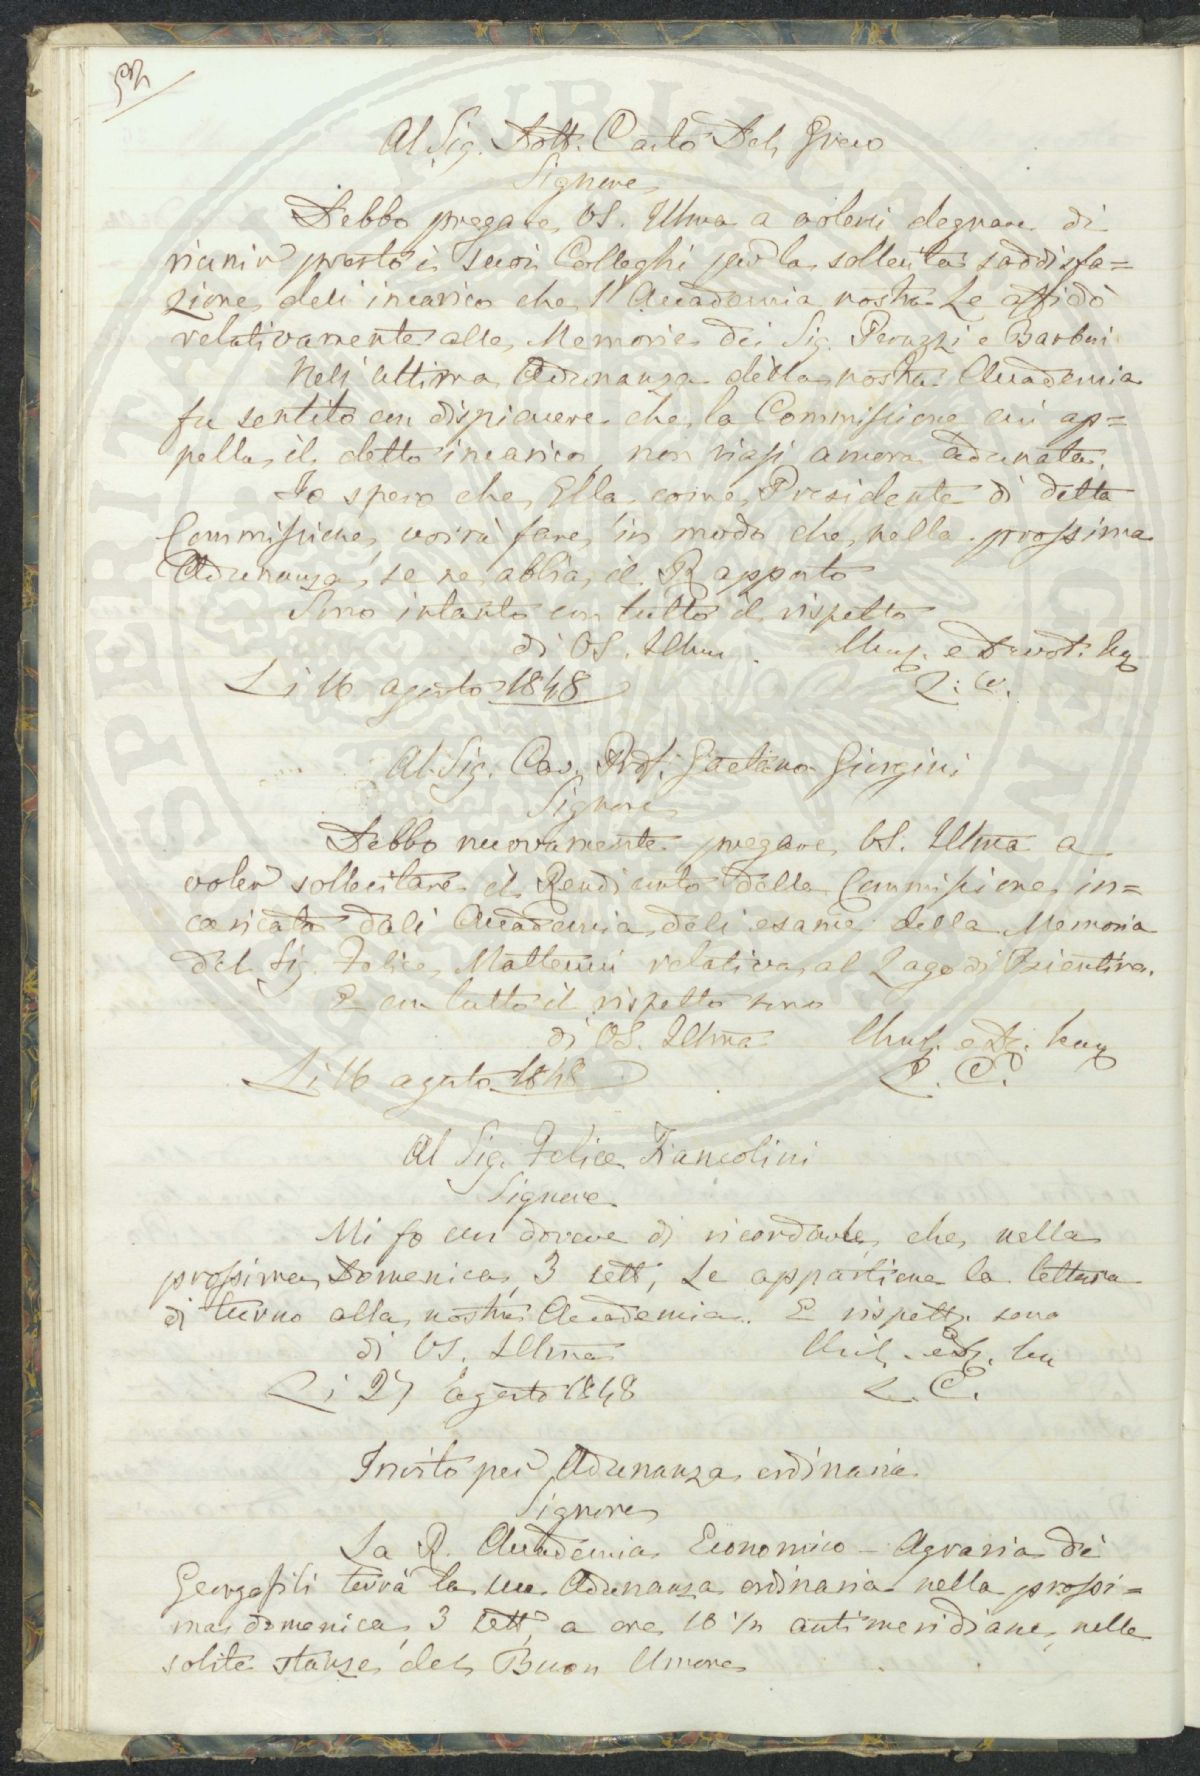 52
Al Sig. Dott. Carlo Del Greco
Signore
Debbo pregare VS. Illma a volersi degnare di
riunir presto i suoi Colleghi per la sollecita saddisfa=
zione dell'incarico che l'Accademia nostra Le affidò
relativamente alle Memorie dei Sig. Peruzzi e Barbui
Nell'ultima Adunanza della nostra Accademia
fu sentito con dispiacere che la Commissione cui ap=
pella il detto incarico non siasi ancora adunata.
Io spero che Ella, come Presidente di detta
Commissione, vorrà fare in modo che nella prossima
Adunanza, se ne abbia il Rapporto
Sono intanto con tutto il rispetto
di VS. Illma. Umil. e Devot.
Li 16 agosto 1848 L: C.
Al Sig. Cav. Prof. Gaetano Giorgini
Signore
Debbo nuovamente pregare VS. Illma a
voler sollecitare il Rendiconto della Commissione in=
caricata dall'Accademia dell'esame della Memoria
del Sig. Felice Matteucci relativa al Lago di Bientina.
E con tutto il rispetto sono
di VS. Illma Umil. e D.
Li 16 agosto 1848 L. C.
Al Sig. Felice Francolini
Signore
Mi fo un dovere di ricordarle, che, nella
prossima Domenica, 3 sett, Le appartiene la lettura
di turno alla nostra Accademia. E rispett. sono
di VS. Illma Umil. e D.
Li 27 agosto 1848 L. C.
Invito per Adunanza ordinaria
Signore
La R. Accademia Economico-Agraria dei
Georgofili terrà la sua Adunanza ordinaria nella prossi=
ma domenica, 3 sett, a ore 10 1/2 antimeridiane, nelle
solite stanze del Buon Umore
SPERITAS PUBLICA AUGENDA